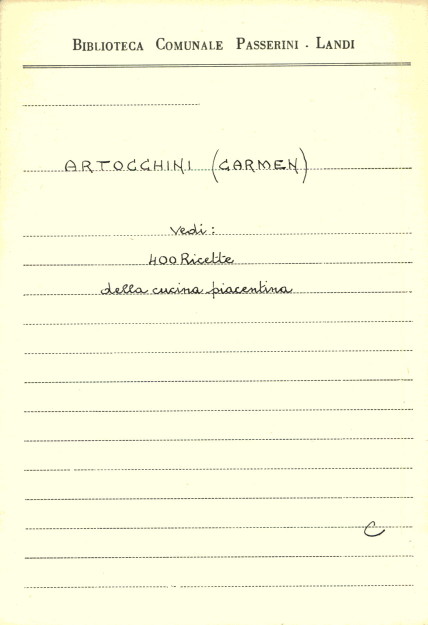 BIBLIOTECA COMUNALE PASSERINI - LANDI
ARTOCCHINI (CARMEN)
Vedi:
400 Ricette
della cucina piacentina
C